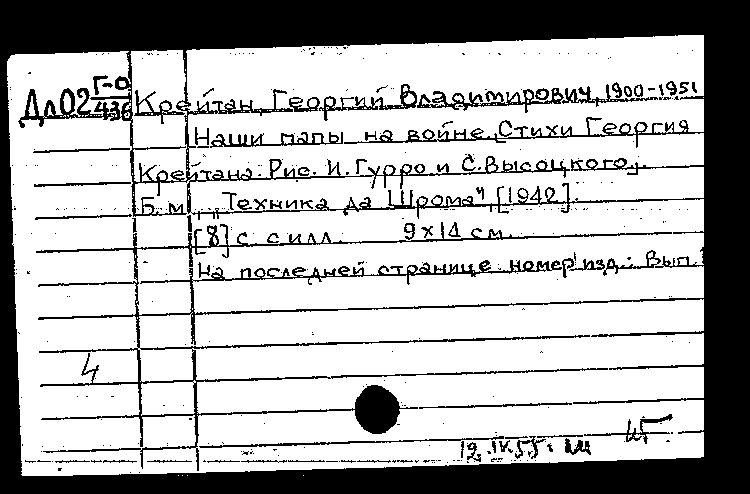 Дл02 Г-0/436 Крейтан, Георгий Владимирович, 1900-1951
Наши папы на войне. Стихи Георгия
Крейтана. Рис. И. Гурро и С. Высоцкого.
Б. м., „Техника да Шрома", [1942].
[8] с. с илл. 9x14 см.
На последней странице номер изд.: Вып. 1
4
12.IX.55.